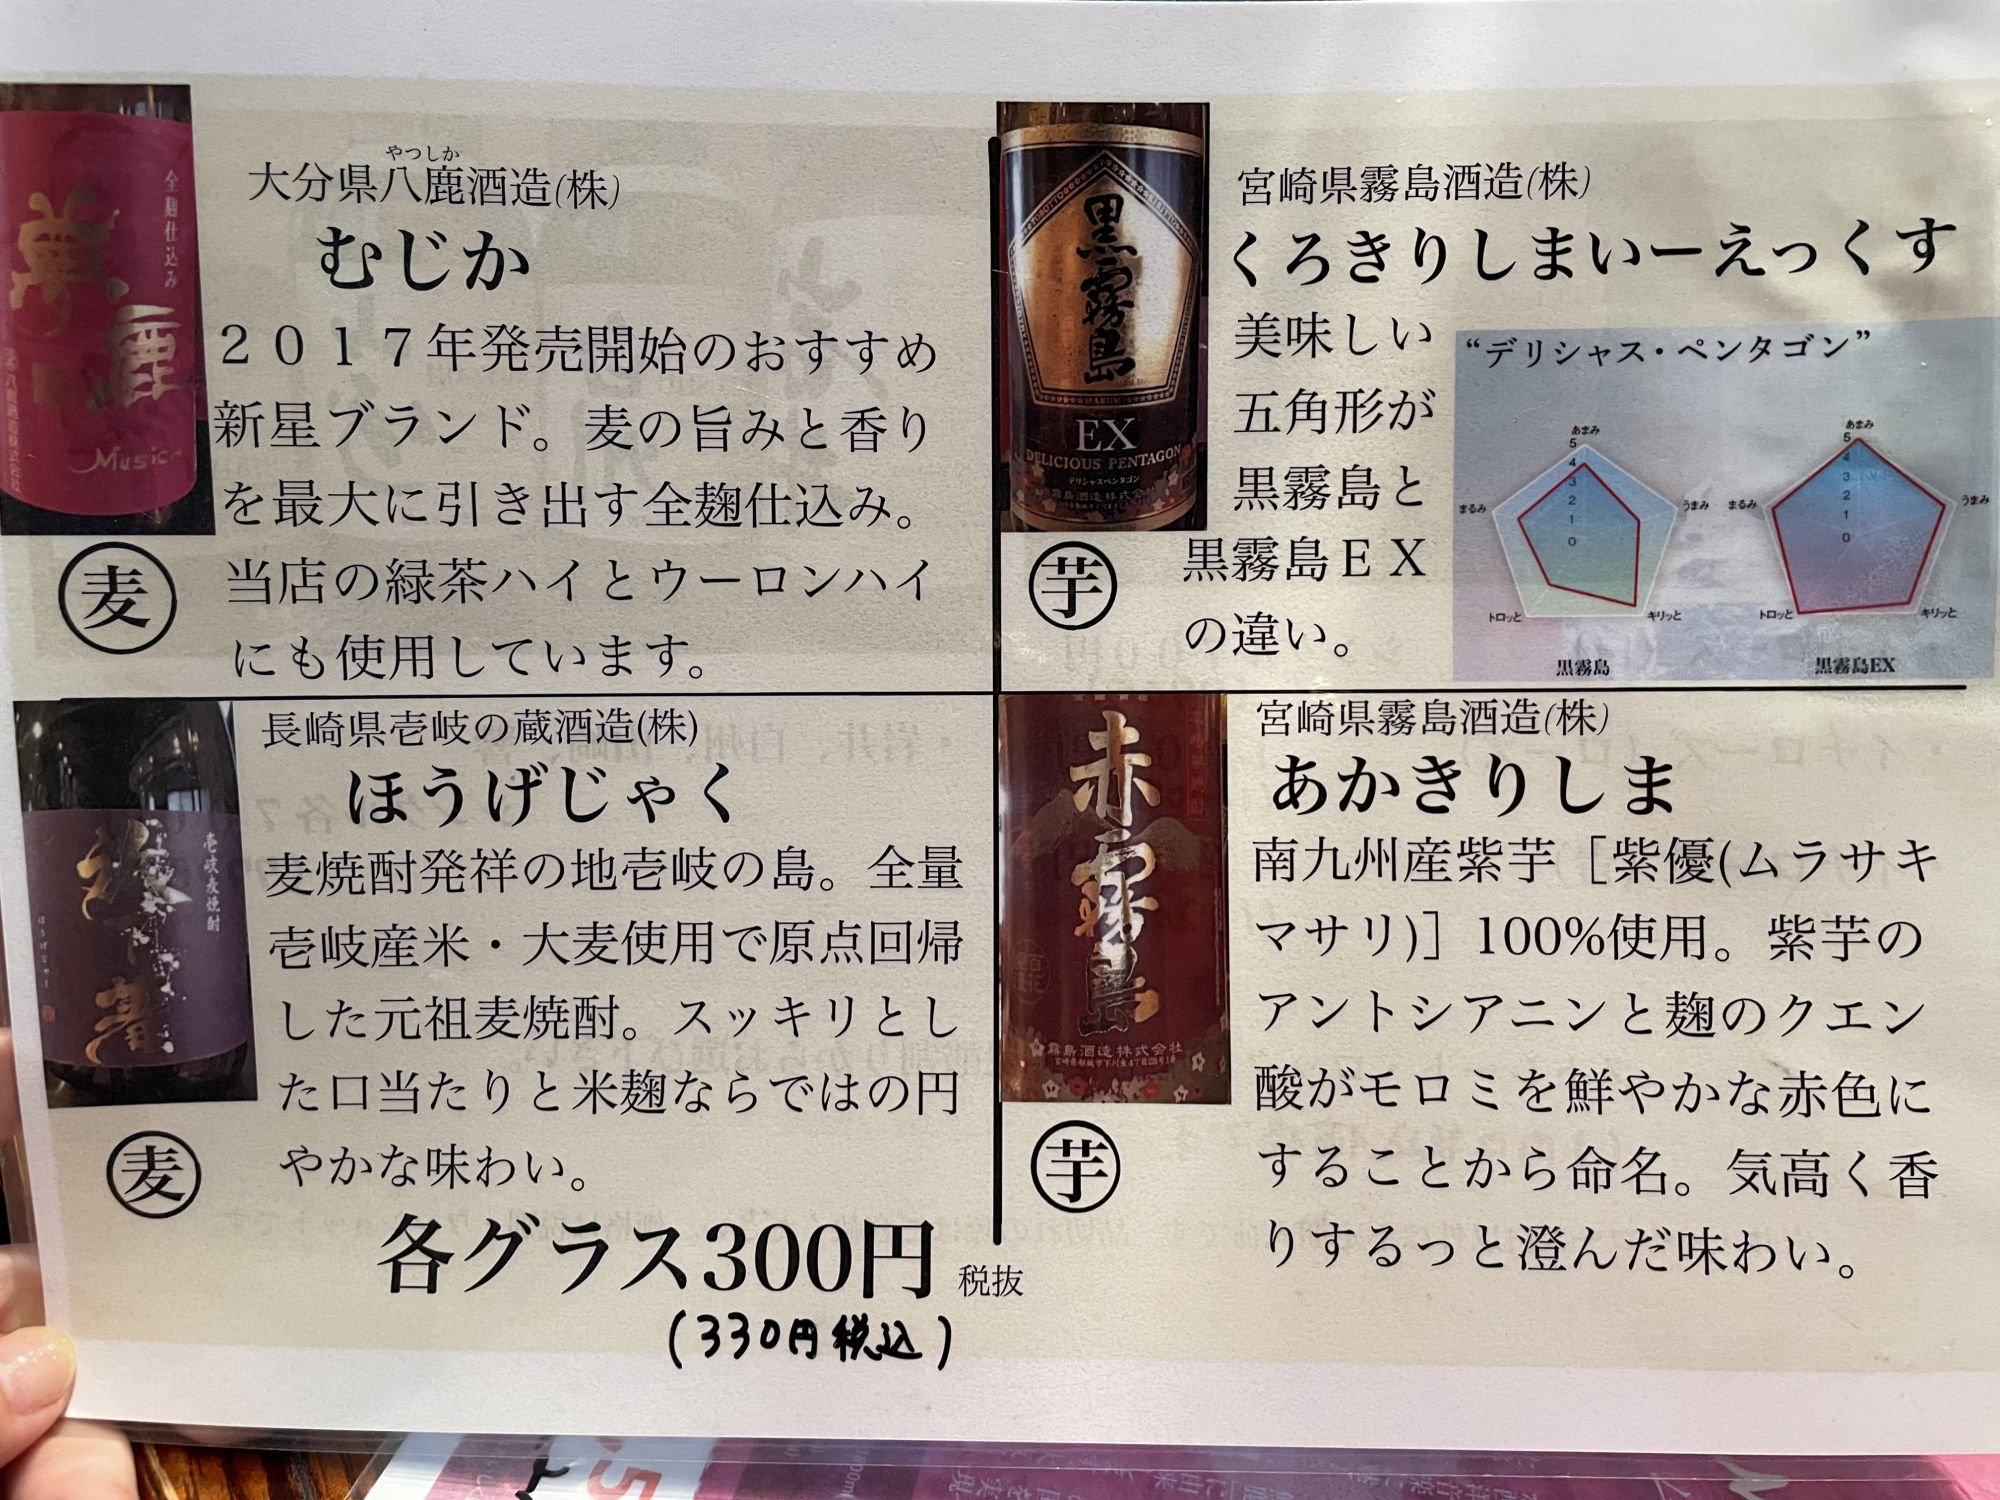 夢鹿
全麹仕込み
Music
やつしか
大分県八鹿酒造(株)
むじか
２０１７年発売開始のおすすめ
新星ブランド。麦の旨みと香り
を最大に引き出す全麹仕込み。
当店の緑茶ハイとウーロンハイ
にも使用しています。
麦
黒霧島
EX
DELICIOUS PENTAGON
デリシャスペンタゴン
霧島酒造株式会社
宮崎県霧島酒造(株)
くろきりしまいーえっくす
美味しい
五角形が
黒霧島と
黒霧島ＥＸ
の違い。
芋
“デリシャス・ペンタゴン”
あまみ
5
4
3
2
1
0
まるみ
うまみ
トロッと
キリッと
黒霧島
あまみ
5
4
3
2
1
0
まるみ
うまみ
トロッと
キリッと
黒霧島EX
壱岐麦焼酎
ほうげじゃく
長崎県壱岐の蔵酒造(株)
ほうげじゃく
麦焼酎発祥の地壱岐の島。全量
壱岐産米・大麦使用で原点回帰
した元祖麦焼酎。スッキリとし
た口当たりと米麹ならではの円
やかな味わい。
麦
赤霧島
霧島酒造株式会社
宮崎県霧島酒造(株)
あかきりしま
南九州産紫芋［紫優(ムラサキ
マサリ)］100%使用。紫芋の
アントシアニンと麹のクエン
酸がモロミを鮮やかな赤色に
することから命名。気高く香
りするっと澄んだ味わい。
芋
各グラス300円 税抜
(330円税込)